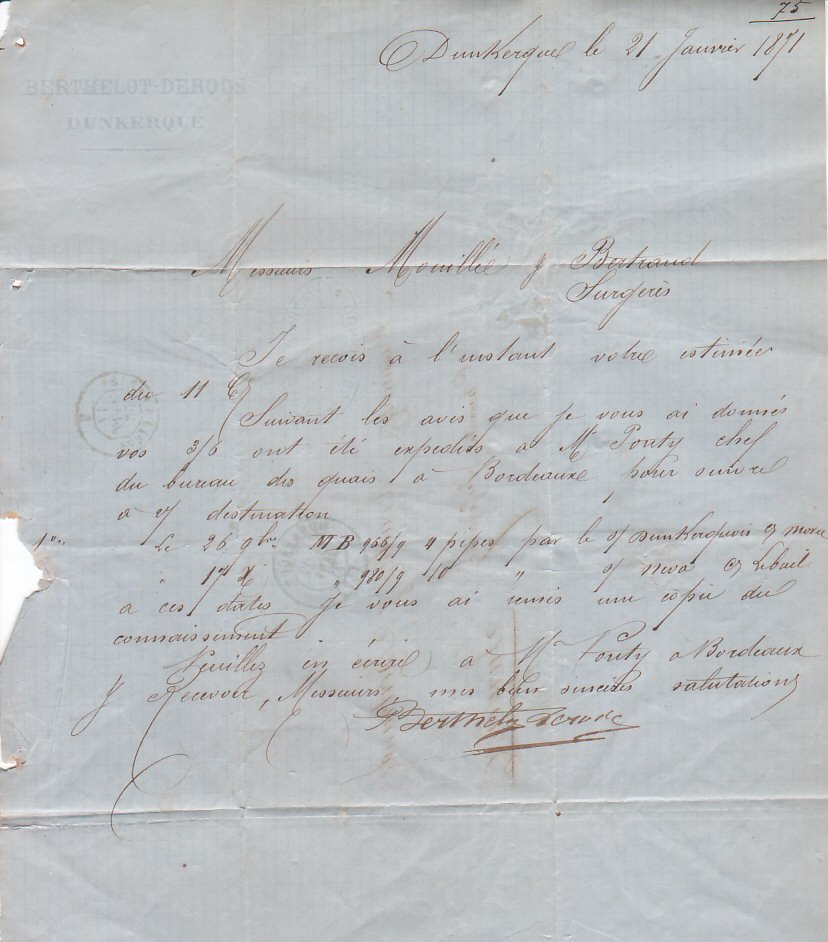 75
Dunkerque le 21 Janvier 1871
BERTHELOT-DERODE
DUNKERQUE
Messieurs Mouillé & Bertrand
Surgères
Je reçois à l'instant votre estimée
du 11 Ct
Suivant les avis que je vous ai donnés
vos 3/6 ont été expédiés à Mr Ponty chef
du bureau des quais à Bordeaux pour suivre
à destination
Le 26 9bre MB 966/9 4 pipes par le s/ Dunkerquois
" 17 X " 980/9 10 " s/ Neva
à ces dates je vous ai remis une copie du
connaissement
Veuillez en écrire à Mr Ponty à Bordeaux
& Recevoir, Messieurs mes bien sincères salutations
Berthelot Derode